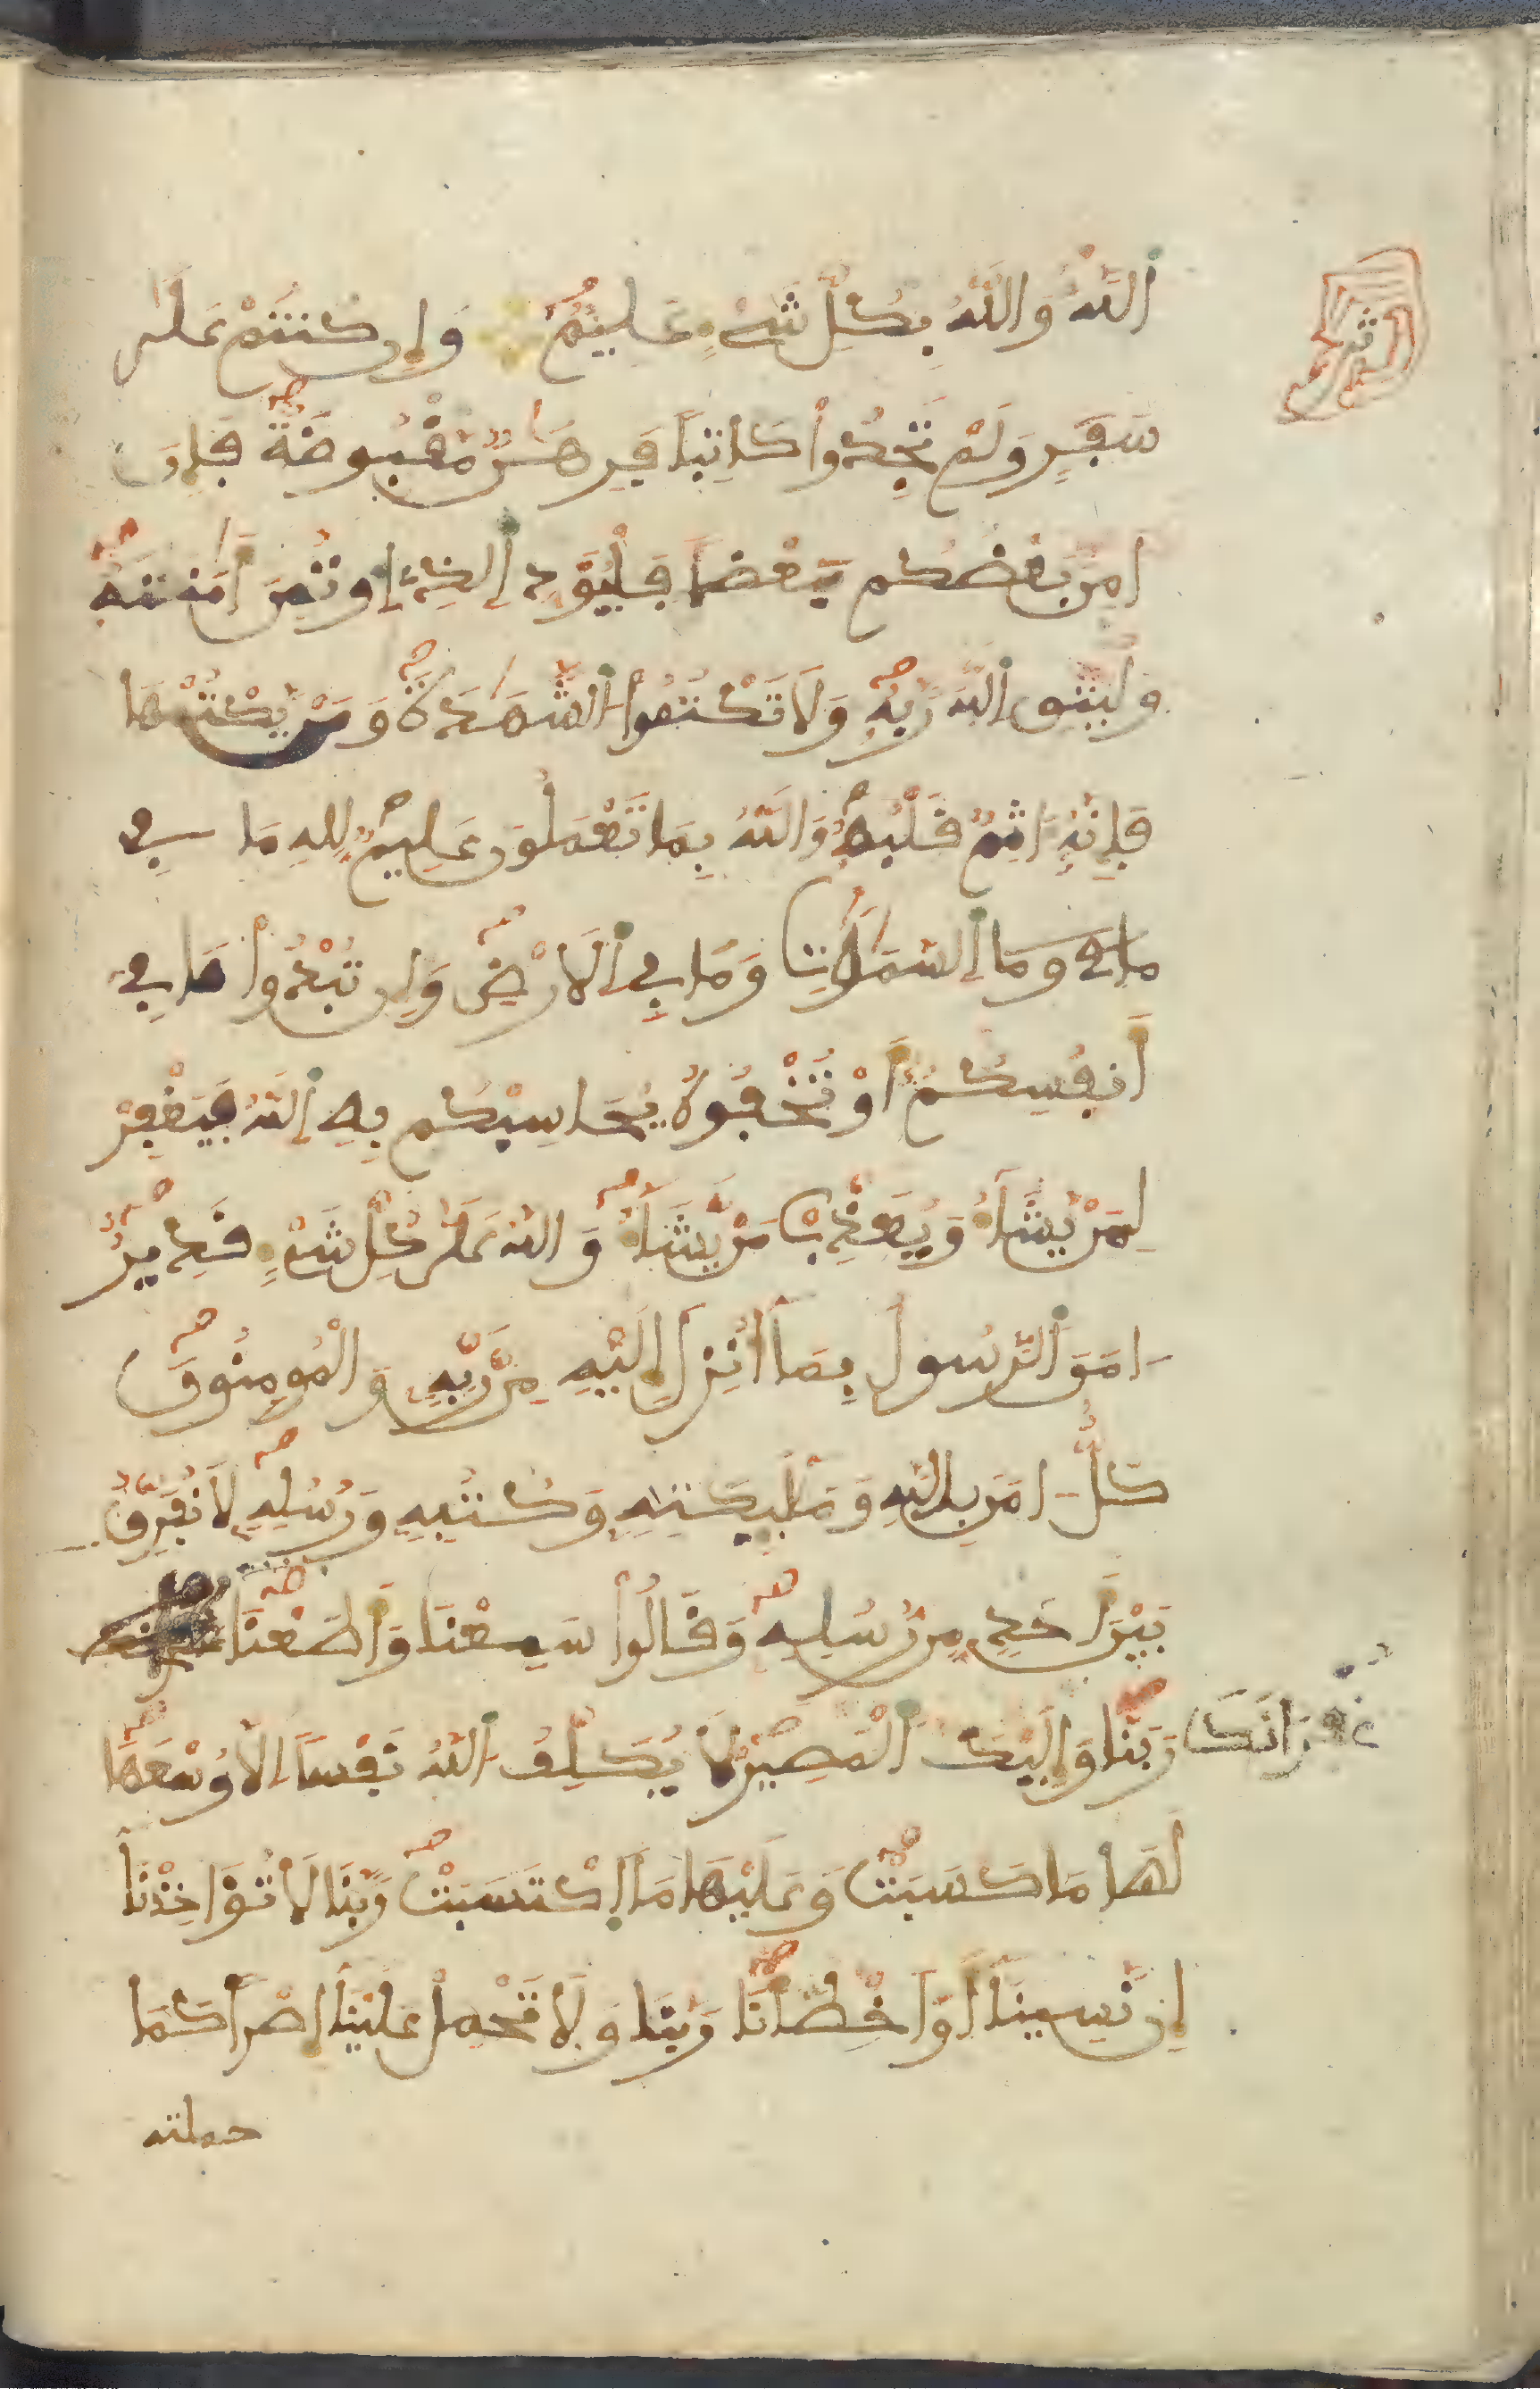 اَللَّهُ وَاللَّهُ بِكُلِّ شَيْءٍ عَلِيمٌ وَإِن كُنتُمْ عَلَىٰ
سَفَرٍ وَلَمْ تَجِدُوا كَاتِبًا فَرِهَٰنٌ مَّقْبُوضَةٌ فَإِنَ
امِنَ بَعْضُكُم بَعْضًا فَلْيُوَدِّ اِلذِے اِوتُمِنَ أَمَٰنَتَهُ
وَلْيَتَّقِ اِللَّهَ رَبَّهُ وَلَا تَكْتُمُوا اُلشَّهَٰدَةَ وَمَنْ يَّكْتُمْهَا
فَإِنَّهُ ءَاثِمٌ قَلْبُهُ وَاللَّهُ بِمَا تَعْمَلُونَ عَلِيمٌ لِّلهِ مَا فِے
مافے وما اِلسَّمَٰوَٰتِ وَمَا فِے اِلَارْضِ وَإِن تُبْدُوا مَا فِے
أَنفُسِكُمُ أَوْ تُخْفُوهُ يُحَاسِبْكُم بِهِ اِللَّهُ فَيَغْفِرْ
لِمَنْ يَّشَاءُ وَيُعَذِّبْ مَنْ يَّشَاءُ وَاللهُ عَلَىٰ كُلِّ شَيْءٍ قَدِيرٌ
ءَامَنَ اَلرَّسُولُ بِمَا أُنزِلَ إِلَيْهِ مِن رَّبِّهِ وَالْمُومِنُونَ
كُلٌّ ـ امَنَ بِاللَّهِ وَمَلَٰئِكَتِهِ وَكُتُبِهِ وَرُسُلِهِ لَا نُفَرِّقُ
بَيْنَ أَحَدٍ مِّن رُّسُلِهِ وَقَالُوا سَمِعْنَا وَأَطَعْنَا
غفرَانَكَ رَبَّنَا وَإِلَيْكَ اَلْمَصِيرُ لَا يُكَلِّفُ اُللَّهُ نَفْسًا اِلَّا وُسْعَهَا
لَهَا مَا كَسَبَتْ وَعَلَيْهَا مَا اَكْتَسَبَتْ رَبَّنَا لَا تُوَاخِذْنَا
إِن نَّسِينَا أَوَ اخْطَأْنَا رَبَّنَا وَلَا تَحْمِلْ عَلَيْنَا إِصْرًا كَمَا
حملته